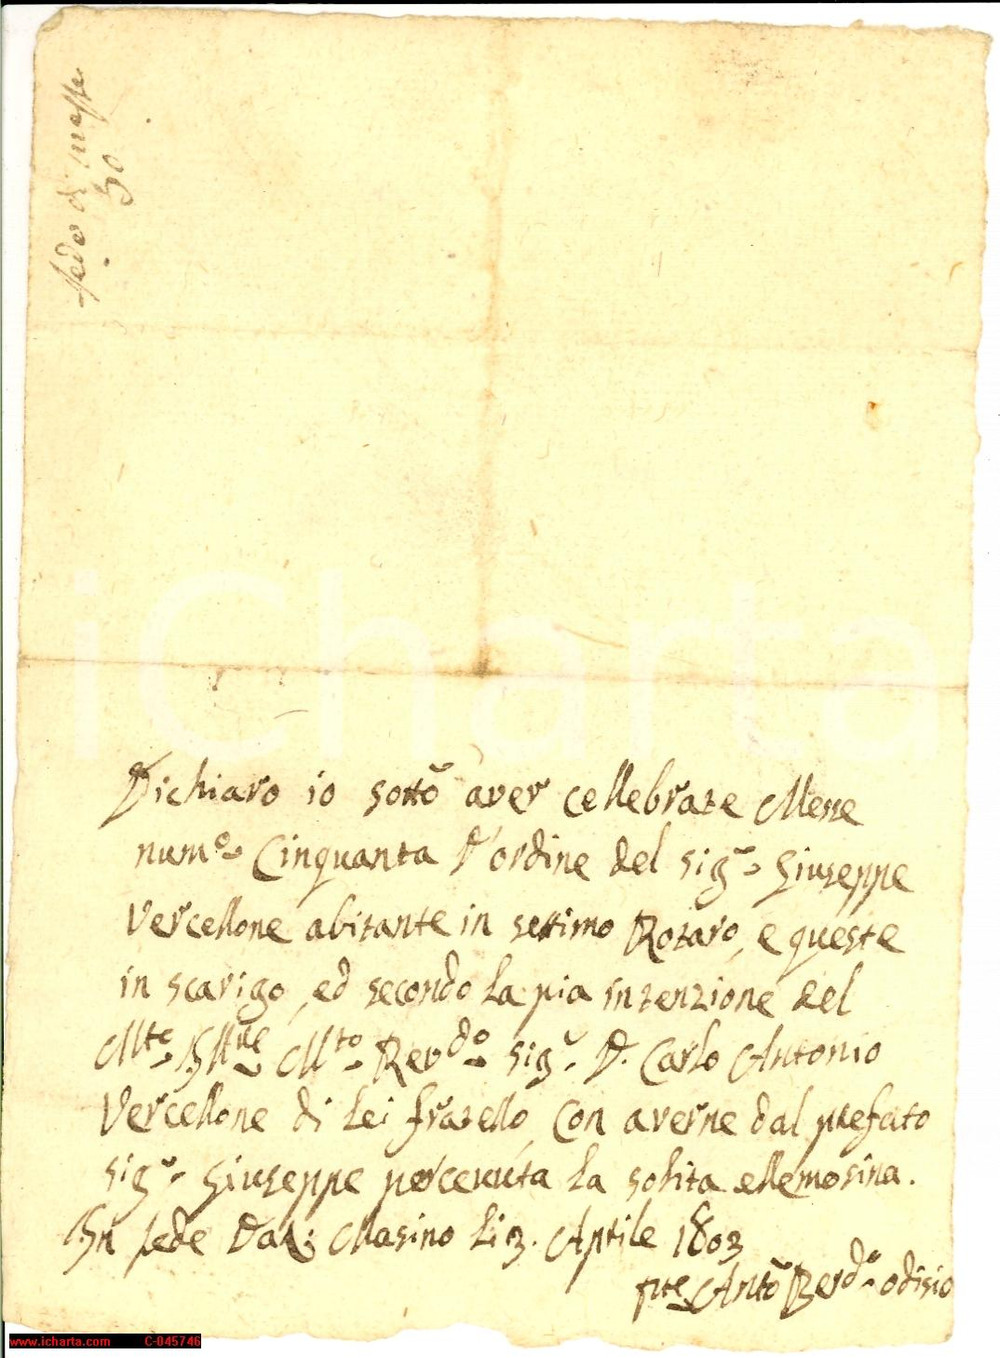 fede di messe
50
Dichiaro io sotto aver cellebrate Messe
num.o Cinquanta d'ordine del sig.r Giuseppe
Vercellone abitante in settimo Rotaro, e queste
in scarigo, ed secondo la pia intenzione del
M.te Ill.re M.to Rev.do sig.r D. Carlo Antonio
Vercellone di lei fratello, con averne dal prefato
sig.r Giuseppe percevuta la solita ellemosina.
In fede Masino li 3. Aprile 1803
Anto Berd.o odisio
iCharta
www.icharta.com C-045746